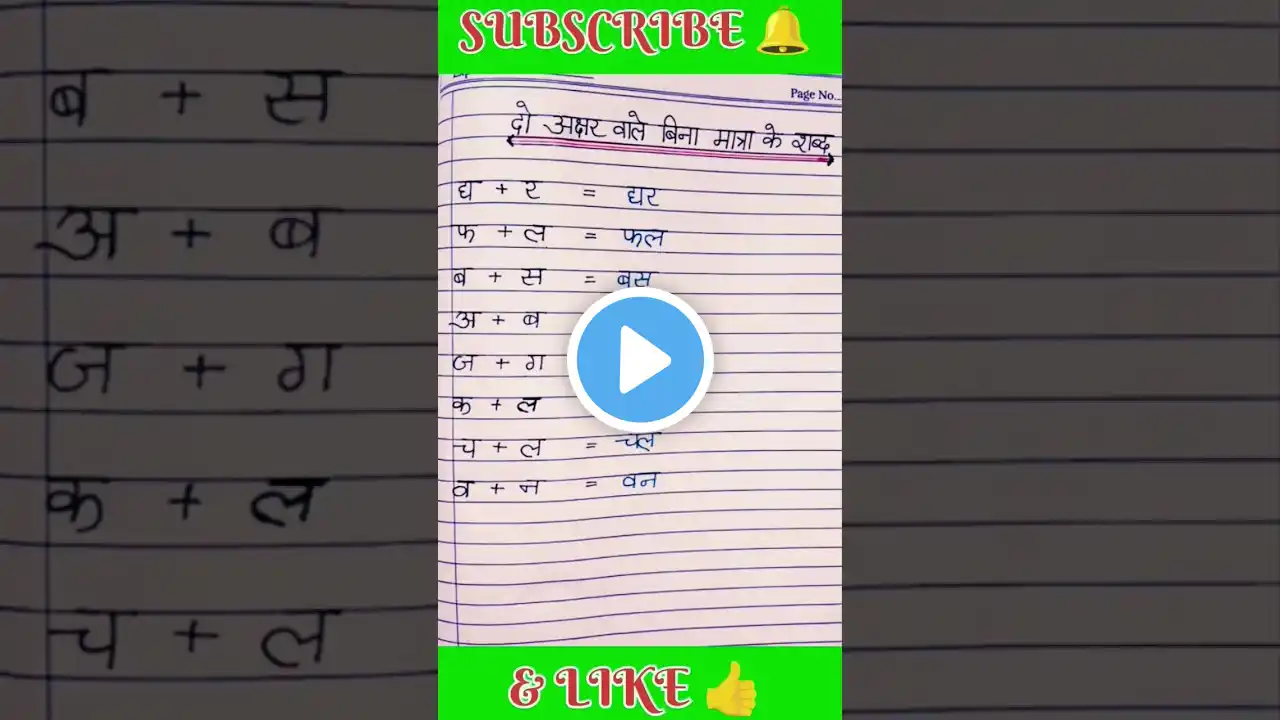 SUBSCRIBE
Page No...
दो अक्षर वाले बिना मात्रा के शब्द
घ + र = घर
फ + ल = फल
ब + स = बस
अ + ब
ज + ग
क + ल
च + ल = चल
व + न = वन
& LIKE
ब + स
अ + ब
ज + ग
क + ल
च + ल